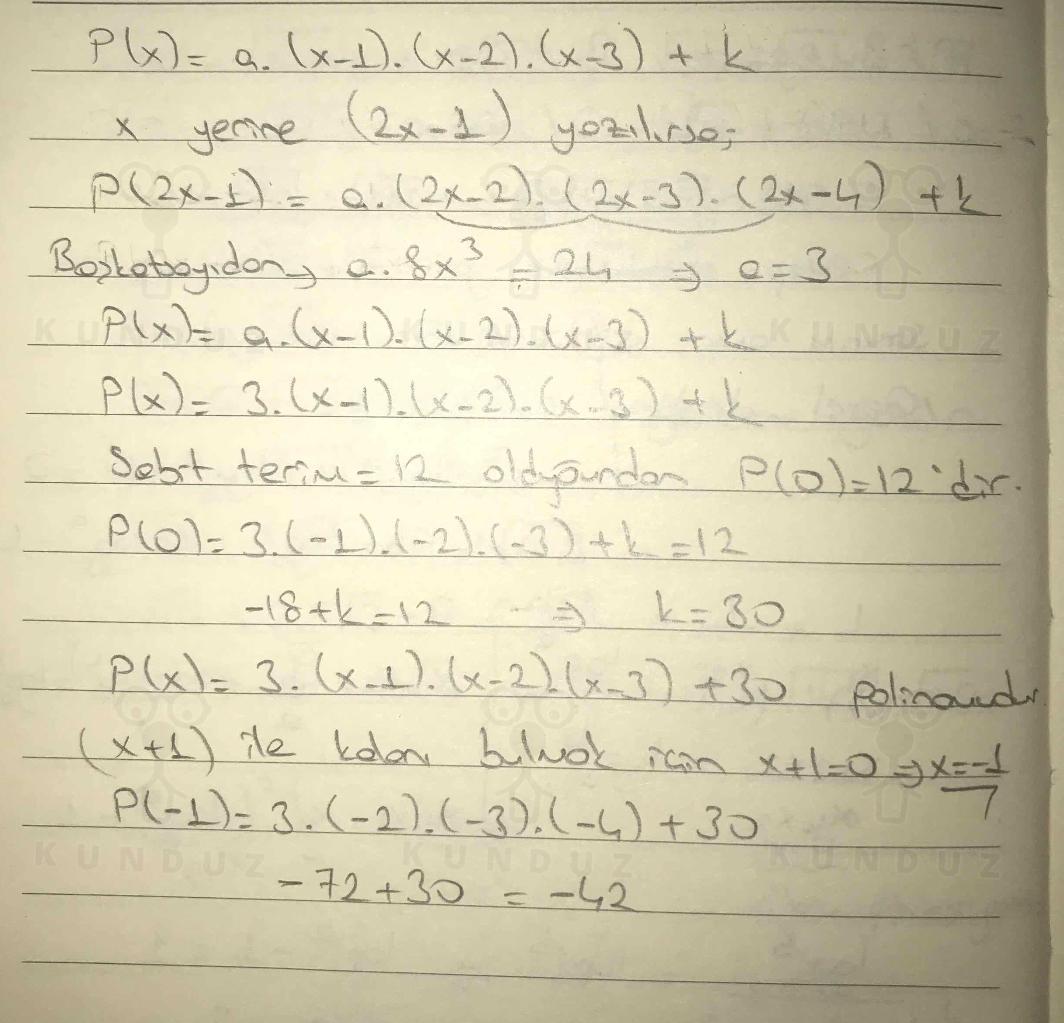 P(x) = a. (x-1). (x-2). (x-3) + k
x yerine (2x-1) yazılırsa;
P(2x-1) = a. (2x-2). (2x-3). (2x-4) + k
Başkatsayıdan → a. 8x³ = 24 ⇒ a = 3
P(x) = a. (x-1). (x-2). (x-3) + k
P(x) = 3. (x-1). (x-2). (x-3) + k
Sabit terim = 12 olduğundan P(0) = 12 'dir.
P(0) = 3. (-1). (-2). (-3) + k = 12
-18 + k = 12 ⇒ k = 30
P(x) = 3. (x-1). (x-2). (x-3) + 30 polinomudur.
(x+1) ile kalanı bulmak için x+1=0 ⇒ x=-1
P(-1) = 3. (-2). (-3). (-4) + 30
-72 + 30 = -42
KUNDUZ KUNDUZ KUNDUZ
KUNDUZ KUNDUZ KUNDUZ